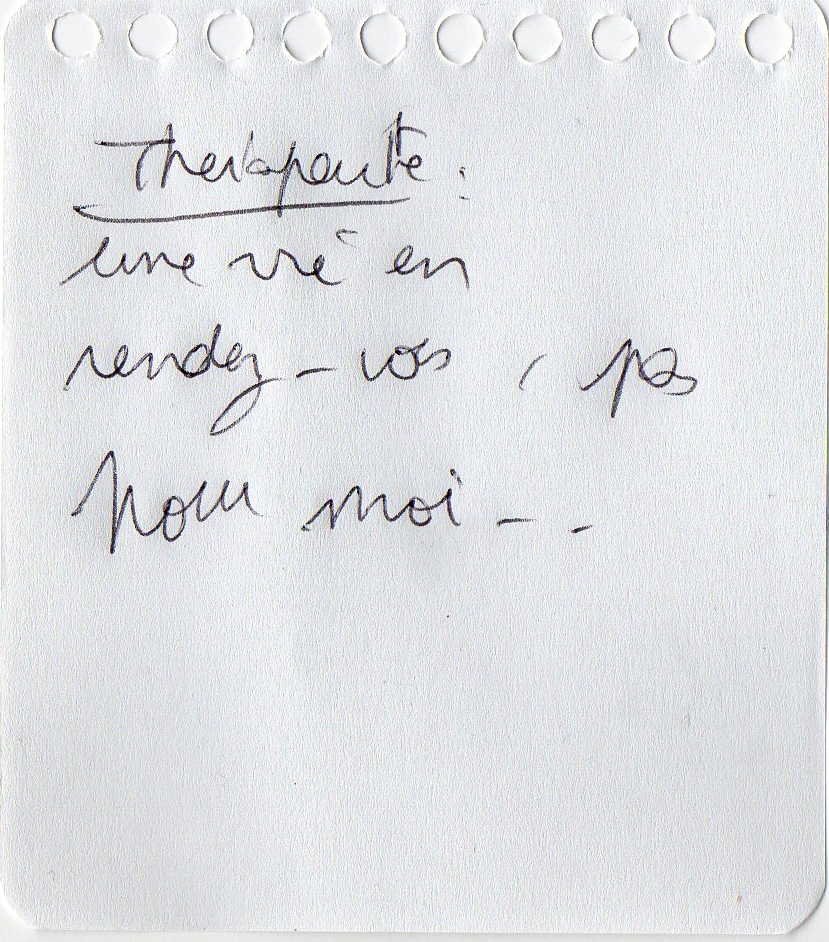 Therapeute :
une vie en
rendez-vous, pas
pour moi - -